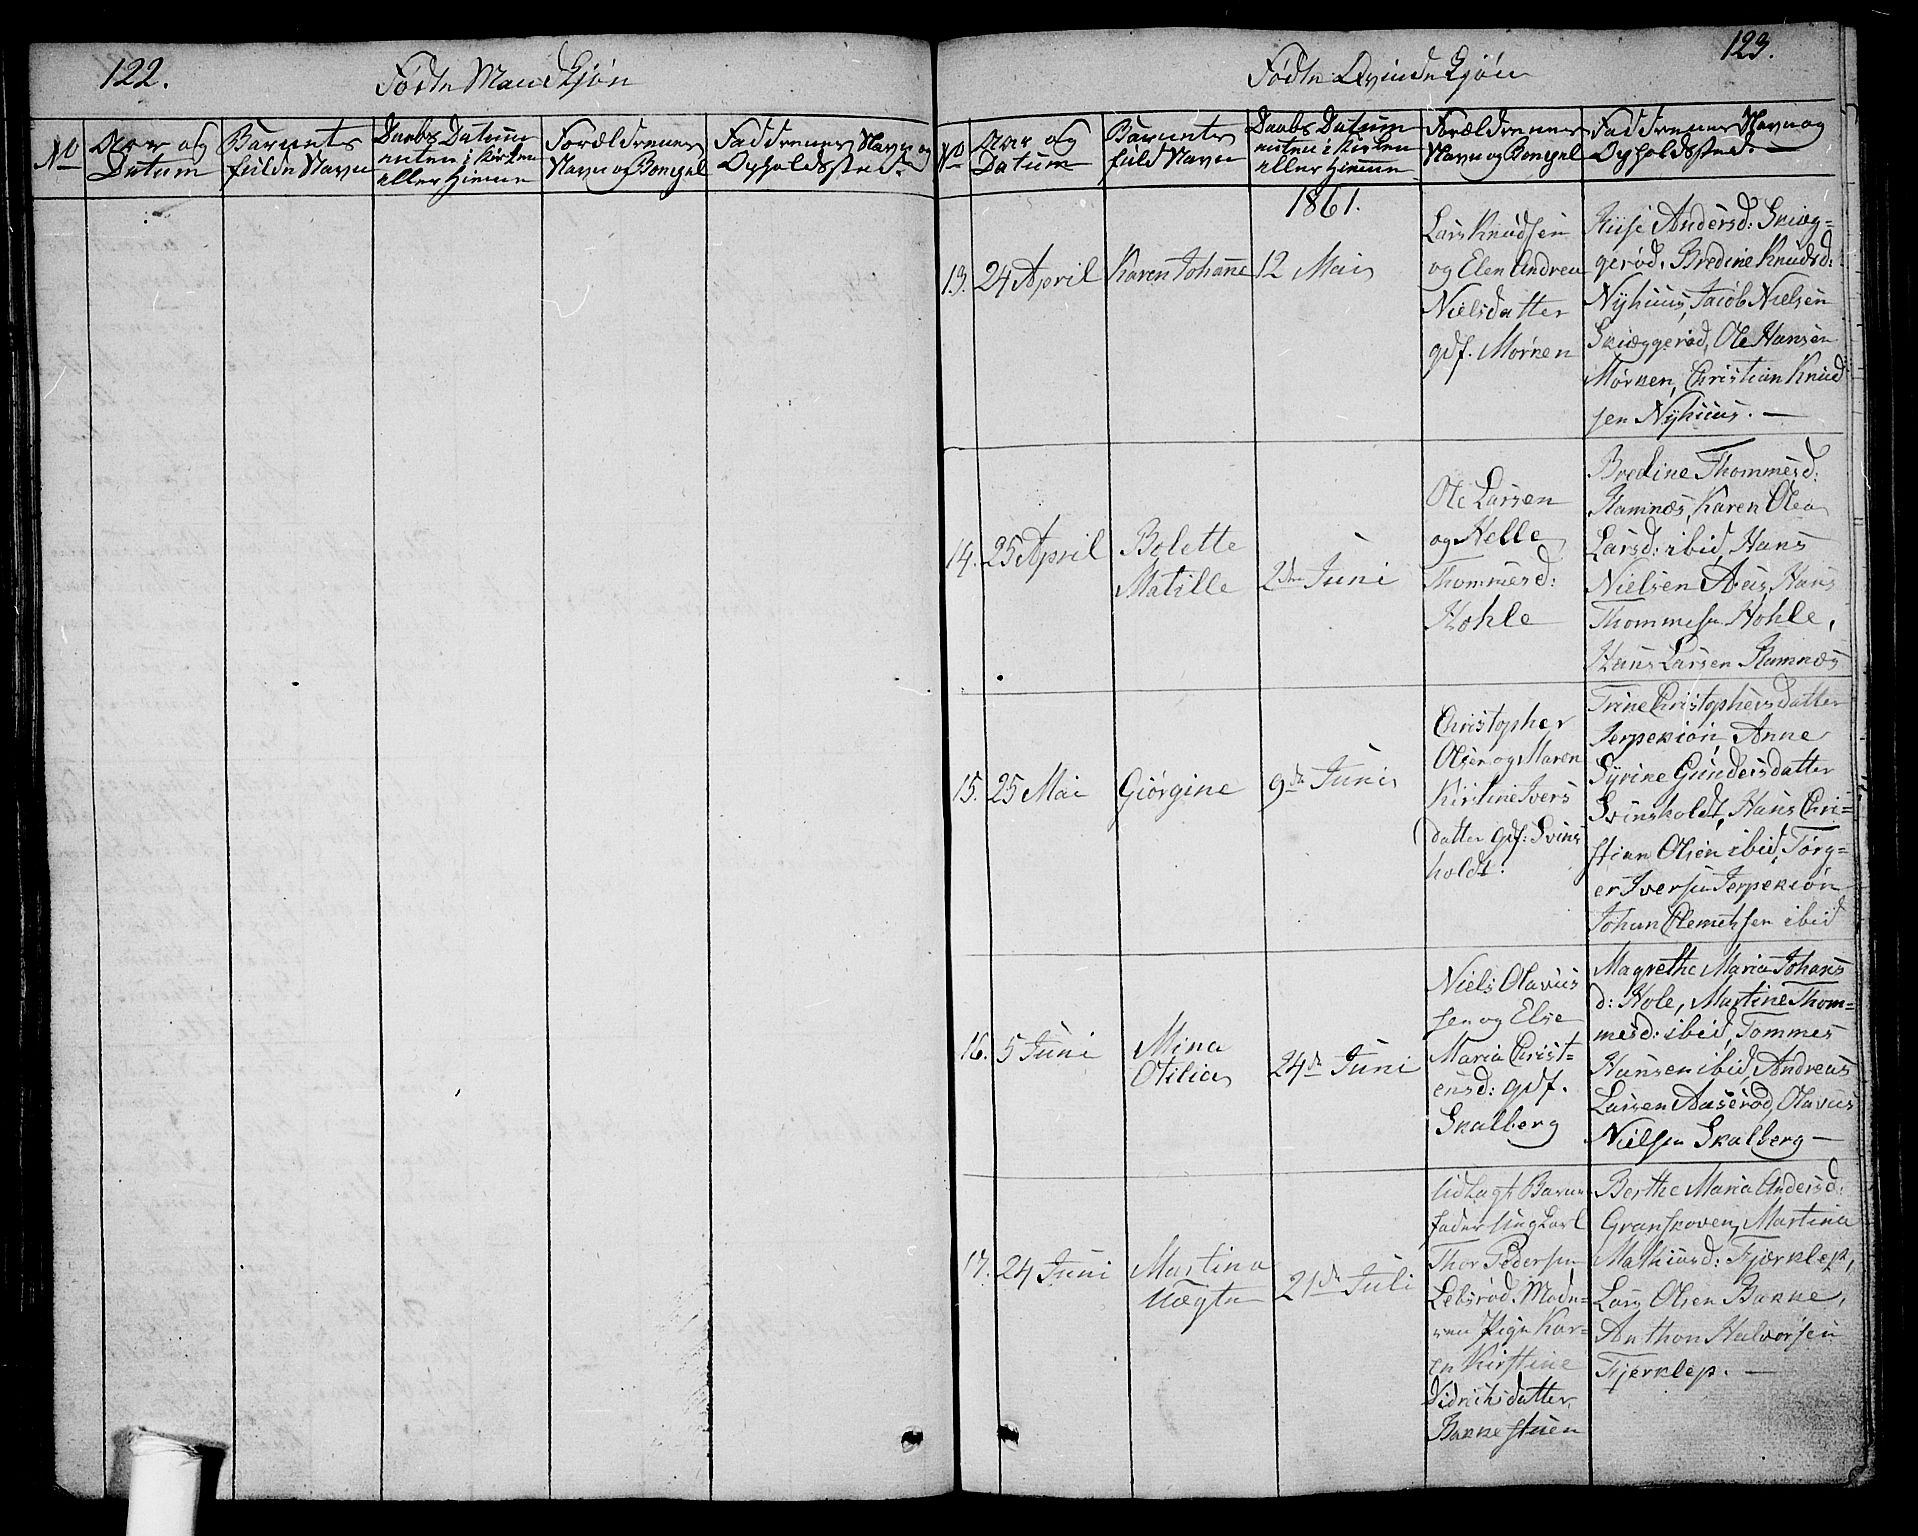 122.
Fødte Mandkjøn
No
Aar og
Datum
Barnets
fulde Navn
Daabs Datum
enten i Kirken
eller Hjemme
Forældrenes
Navn og Bopæl
Faddrenes Navn og
Opholdssted.
123.
Fødte Qvindekjøn
No
Aar og
Datum
Barnets
fuld Navn
Daabs Datum
enten i Kirken
eller Hjemme
Forældrenes
Navn og Bopæl
Faddrenes Navn og
Opholdssted.
1861.
13.
24 April
Karen Johanne
12 Mai
Lars Knudsen
og Elen Andrea
Nielsdatter
gdf. Mørken
Andersd: Skiæg-
gerød, Bredine Knudsd:
Nyhuus, Jacob Nielsen
Skiæggerød, Ole Hansen
Mørken, Christian Knud
sen Nyhuus. —
14.
25 April
Bolette
Matille
2den Juni
Ole Larsen
og Helle
Thommesd:
Hohle
Bredine Thommesd:
Ramnæs, Karen Olea
Larsd: ibid, Hans
Nielsen Aas, Hans
Thommesen Hohle,
Hans Larsen Ramnæs
15.
25 Mai
Giørgine
9de Juni
Christopher
Olsen og Maren
Kirstine Ivers
datter gdf: Svins
holdt.
Trine Christophersdatter
Jerpekiøn, Anne
Syrine Gundersdatter
Svinsholdt, Hans Chri-
stian Olsen ibid, Torg-
er Iversen Jerpekiøn
Johan Clemetsen ibid
16.
5 Juni
Mina
Otilia
24de Juni
Niels Olavus
sen og Else
Maria Christ-
ensd: gdf.
Skalberg
Magrethe Maria Johans
d: Hole, Martine Thom-
mesd: ibid, Tommes
Hansen ibid, Andreas
Larsen Aaserød, Olavus
Nielsen Skalberg —
17.
24 Juni
Martina
Uægte
21de Juli
Udlagt Barne
fader Ungkarl
Thor Pedersen
Lebsrød. Mode-
ren Pige Kar-
en Kirstine
Didrichsdatter
Bakkestuen
Berthe Maria Andersd:
Granskoven, Martina
Mathiasd: Fjærklep,
Lars Olsen Bakke,
Anthon Halvorsen
Fjerklep. —